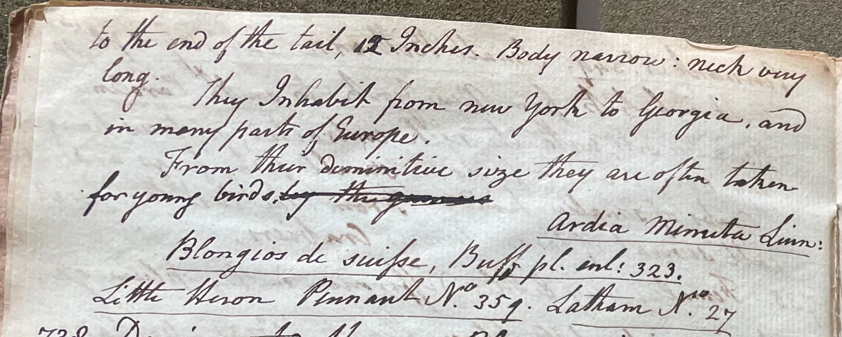 to the end of the tail, 12 Inches. Body narrow: neck very
long.
They Inhabit from new York to Georgia, and
in many parts of Europe.
From their diminitive size they are often taken
for young birds, by the gunners
Ardia Minuta Linn:
Blongios de suifse, Buff pl. enl: 323.
Little Heron Pennant N.o 359. Latham N.o 27